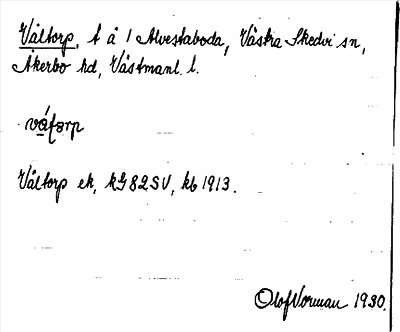 Våltorp, t å 1 Alvestaboda, Västra Skedvi sn,
Åkerbo hd, Västmanl. l.
Våltorp ek, kG82SV, kb 1913.
Olof Vorman 1930.